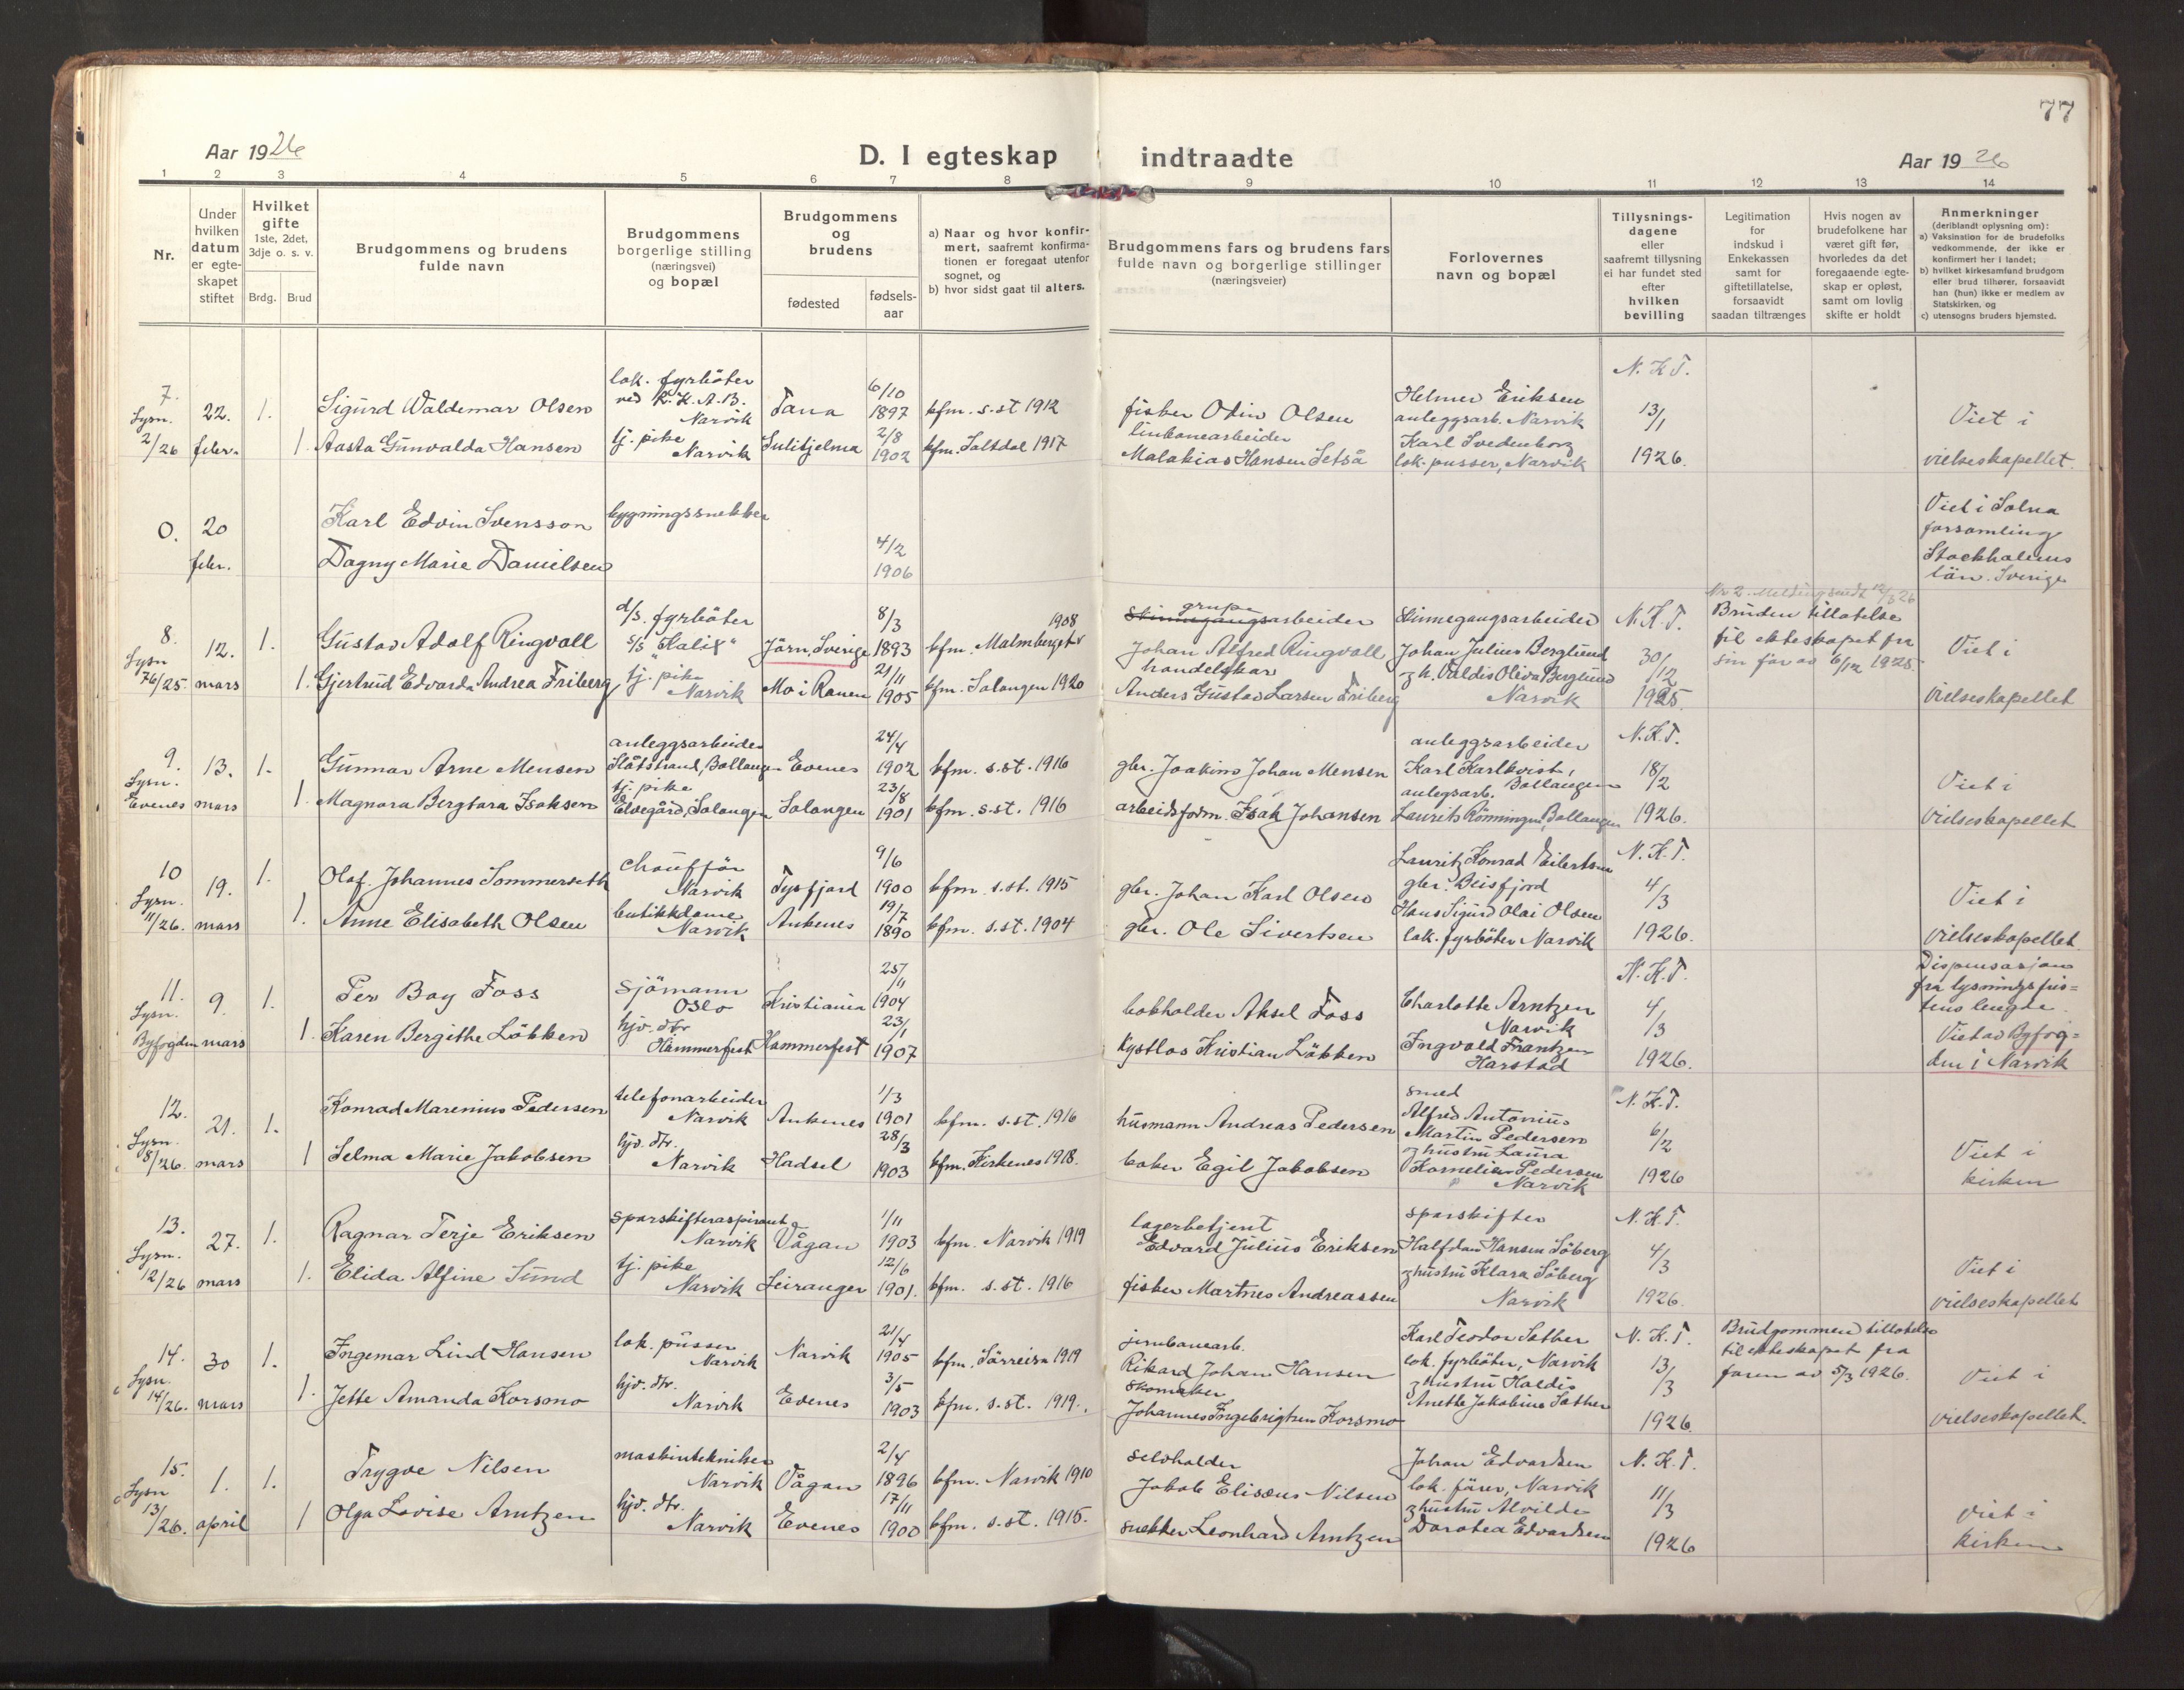 77
Aar 1926
D. I egteskap indtraadte
Aar 1926
1 2 3 4 5 6 7 8 9 10 11 12 13 14
Nr.
Under hvilken datum er egteskapet stiftet
Hvilket gifte 1ste, 2det, 3dje o. s. v.
Brdg. Brud
Brudgommens og brudens fulde navn
Brudgommens borgerlige stilling (næringsvei) og bopæl
Brudgommens og brudens
fødested
fødselsaar
a) Naar og hvor konfirmert, saafremt konfirmationen er foregaat utenfor sognet, og
b) hvor sidst gaat til alters.
Brudgommens fars og brudens fars fulde navn og borgerlige stillinger (næringsveier)
Forlovernes navn og bopæl
Tillysningsdagene eller saafremt tillysning ei har fundet sted efter hvilken bevilling
Legitimation for indskud i Enkekassen samt for giftetillatelse, forsaavidt saadan tiltrænges
Hvis nogen av brudefolkene har været gift før, hvorledes da det foregaaende egteskap er opløst, samt om lovlig skifte er holdt
Anmerkninger (deriblandt oplysning om):
a) Vaksination for de brudefolks vedkommende, der ikke er konfirmert her i landet;
b) hvilket kirkesamfund brudgom eller brud tilhører, forsaavidt han (hun) ikke er medlem av Statskirken, og
c) utensogns bruders hjemsted.
7. Lysn. 2/26
22. febr.
1.
Sigurd Waldemar Olsen
lok. fyrbøter ved N. K. A. B. Narvik
Tana
6/10 1897
kfm. s. st. 1912
fisker Odin Olsen
Helmer Eriksen anleggsarb. Narvik
N. K. T. 13/1 1926.
Viet i vielseskapellet.
1
Aasta Gunvalda Hansen
tj. pike Narvik
Sulitjelma
2/8 1902
kfm. Saltdal 1917
linbanearbeider Malakias Hansen Setså
Karl Svedenborg lok. pusser, Narvik
0.
20 febr.
Karl Edvin Svensson
bygningssnekker
Dagny Marie Danielsen
4/2 1906
Viet i Solna forsamling Stockholms län. Sverige
8. Lysn 76/25.
12. mars
1.
Gustav Adolf Ringvall
d/s. fyrbøter s/s "Kalix"
Jörn, Sverige
8/3 1893
kfm. Malmberget 1908
Skinnegangsarbeider grupe Johan Alfred Ringvall
Skinnegangsarbeider Johan Julius Berglund
N. K. T. 30/12 1925.
Nr 2. Melding sendt 12/3 26
Bruden tillatelse til ekteskapet fra sin far av 6/12 1925.
Viet i vielseskapellet
1.
Gjertrud Edvarda Andrea Friberg
tj. pike Narvik
Mo i Ranen
21/11 1905
kfm. Salangen 1920
handelskar Anders Gustav Larsen Friberg
& h. Valdis Oliva Berglund Narvik
9. Lysn. Evenes
13. mars
1.
Gunnar Arne Mensen
anleggsarbeider Slåtstrand, Ballangen
Evenes
24/4 1902
kfm. s. st. 1916
gbr. Joakim Johan Mensen
anleggsarbeider Karl Karlkvist, Ballangen
N. K. T. 18/2 1926.
Viet i vielseskapellet
1.
Magnora Bergtora Isaksen
tj. pike Elvegård, Salangen
Salangen
23/8 1901
kfm. s. st. 1916
arbeidsform. Isak Johansen
anlegsarb. Laurits Rönningen, Ballangen
10 Lysn. 11/26.
19. mars
1.
Olaf. Johannes Sommerseth
chauffør Narvik
Tysfjord
9/6 1900
kfm. s. st. 1915
gbr. Johan Karl Olsen
Lauritz Konrad Eilertsen gbr. Beisfjord
N. K. T. 4/3 1926.
Viet i vielseskapellet
1.
Anne Elisabeth Olsen
butikkdame Narvik
Ankenes
19/7 1890
kfm. s. st. 1904
gbr. Ole Sivertsen
Hans Sigurd Olai Olsen lok. fyrbøter Narvik
11. Lysn. Byfogden
9. mars
1.
Per Bay Foss
Sjömann Oslo
Kristiania
25/11 1904
bokholder Aksel Foss
Charlotte Arntzen Narvik
N. K. T. 4/3 1926.
Dispensasjon fra lysningsfristens lengde. Viet av Byfogden i Narvik
1.
Karen Bergithe Lökken
hjv. dtr Hammerfest
Hammerfest
23/1 1907
Kystlos Kristian Lökken
Ingvald Frantzen Harstad
12. Lysn. 8/26.
21. mars
1.
Konrad Marenius Pedersen
telefonarbeider Narvik
Ankenes
1/3 1901
kfm. s. st. 1916
husmann Andreas Pedersen
smed Alfred Antonius Martin Pedersen
N. K. T. 6/2 1926
Viet i kirken
1
Selma Marie Jakobsen
hjv. dtr. Narvik
Hadsel
28/3 1903
kfm. Kirkenes 1918.
baker Egil Jakobsen
& hustru Laura Kornelia Pedersen Narvik
13. Lysn. 12/26
27. mars
1.
Ragnar Terje Eriksen
Sporskifteraspirant Narvik
Vågan
1/11 1903
kfm. Narvik 1919
lagerbetjent Edvard Julius Eriksen
Sporskifter Halfdan Hansen Söberg
N. K. T. 4/3 1926.
Viet i vielseskapellet
1.
Elida Alfine Sund
tj. pike Narvik
Leiranger
12/6 1901.
kfm. s. st. 1916
fisker Martnes Andreassen
& hustru Klara Söberg Narvik
14. Lysn. 14/26.
30 mars
1.
Ingemar Lind Hansen
lok. pusser Narvik
Narvik
21/4 1905
kfm. Sørreisa 1919
jernbanearb. Rikard Johan Hansen
Karl Teodor Sæther lok. fyrbøter, Narvik
N. K. T. 13/3 1926.
Brudgommen tillatelse til ekteskapet fra faren av 5/3 1926.
Viet i vielseskapellet.
1.
Jette Amanda Korsmo
hjv. dtr. Narvik
Evenes
3/5 1903
kfm. s. st. 1919.
Skomaker Johannes Ingebrigtsen Korsmo
& hustru Haldis Anette Jakobine Sæther
15. Lysn 13/26.
1. april
1.
Trygve Nilsen
maskintekniker Narvik
Vågan
2/4 1896
kfm. Narvik 1910
selvholder Jakob Elisæus Nilsen
Johan Edvardsen lok. fører, Narvik
N. K. T. 11/3 1926
Viet i kirken
1
Olga Lovise Arntzen
hjv. dtr. Narvik
Evenes
17/11 1900
kfm. s. st. 1915.
snekker Leonhard Arntzen
& hustru Alvilde Dorotea Edvardsen